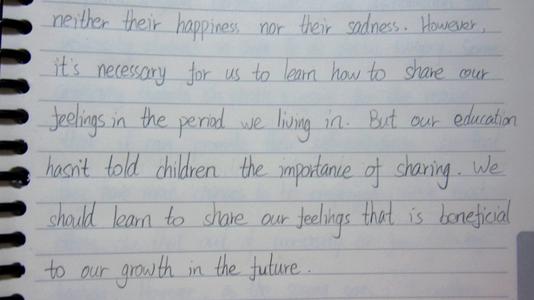 neither their happiness nor their sadness. However,
it's necessary for us to learn how to share our
feelings in the period we living in. But our education
hasn't told children the importance of sharing. We
should learn to share our feelings that is beneficial
to our growth in the future.